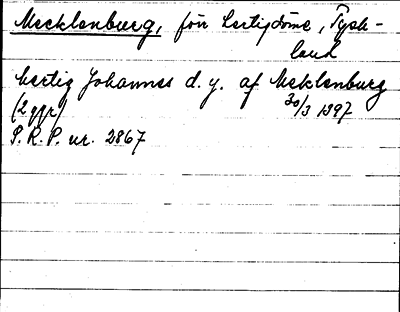 Mecklenburg, för hertigdöme, Tysk-
land
hertig Johannes d. y. af Mecklenburg
(2 ggr) 30/3 1397
S.R.P. nr. 2867